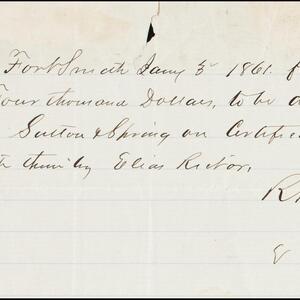 Fort Smith Jany 3d 1861.
Four thousand Dollars, to be
Sutton & Spring on Certific
by Elias Rector,